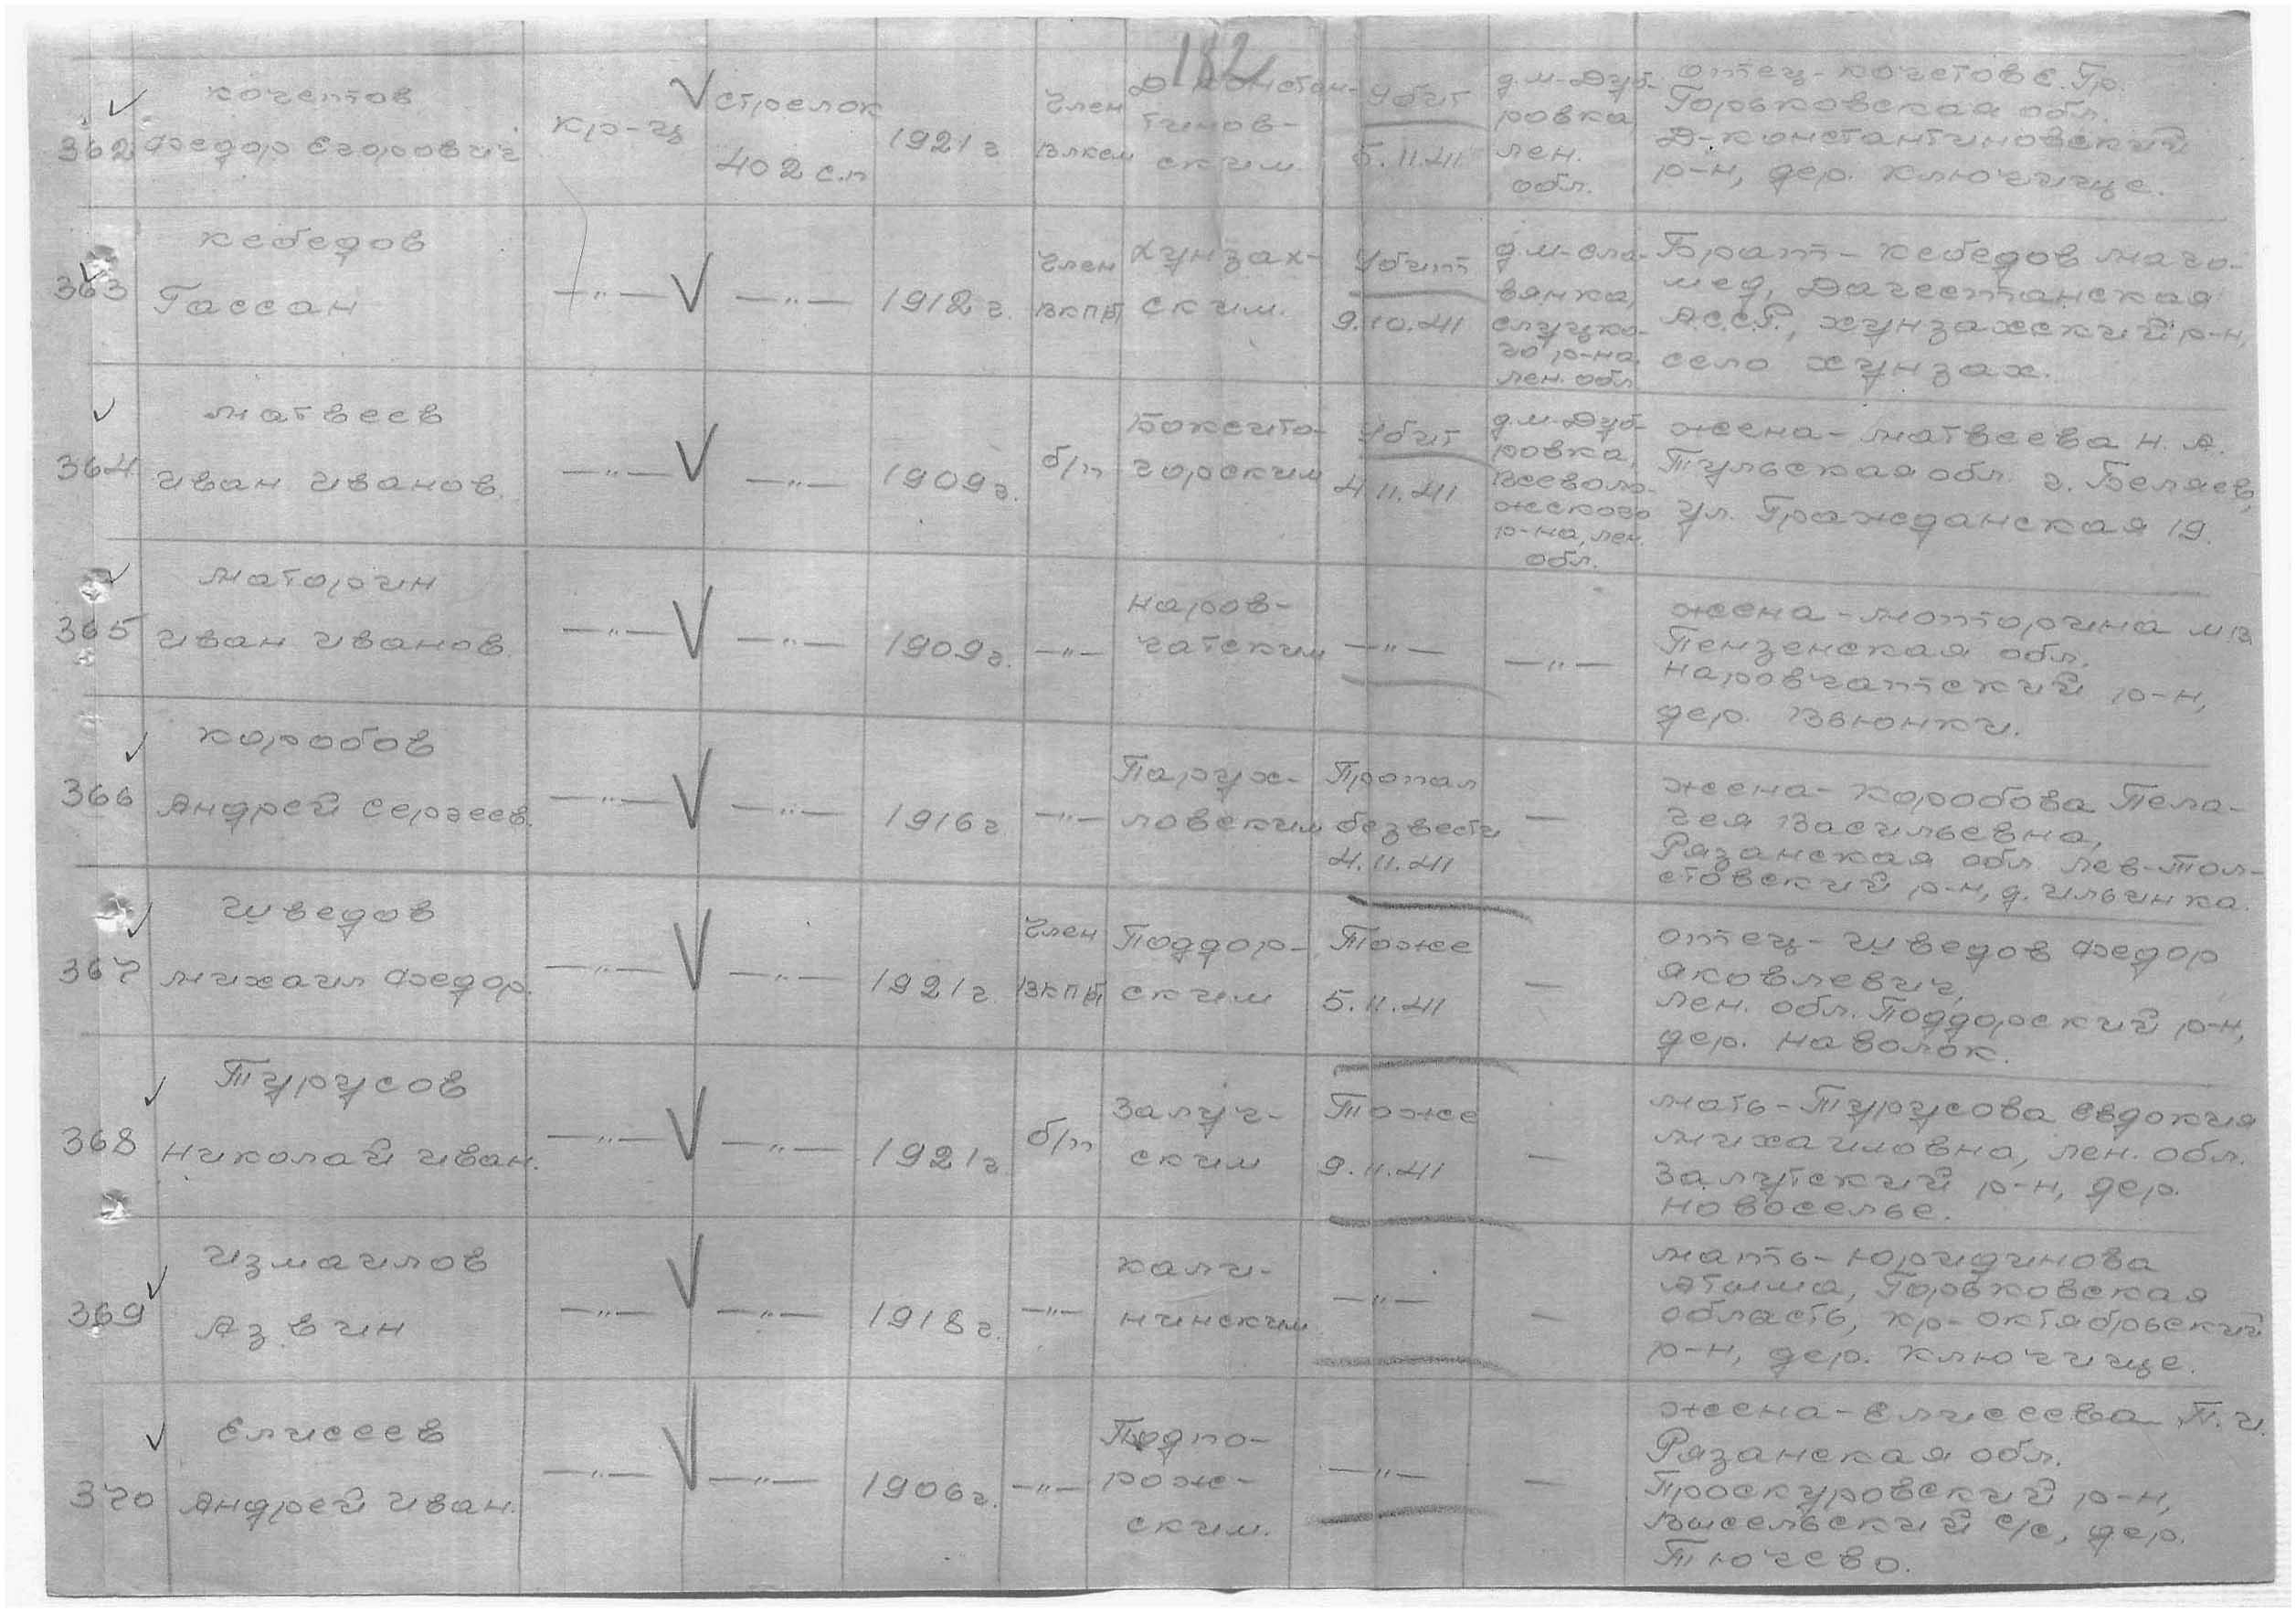 182
Кочетов
362 Федор Егорович
кр-ц
стрелок
402 с.п
1921 г
Член
ВЛКСМ
Д-Констан-
тинов-
ским.
Убит
5.11.41
д.М-Дуб-
ровка
лен.
обл.
отец-Кочетов Е.Гр.
Горьковская обл.
Д-Константиновский
р-н, дер. Ключище.
Кебедов
363 Гассан
—"—
—"—
1912 г.
Член
ВКПб
Хунзах-
ским.
Убит
9.10.41
д.М-Сла-
вянка,
Слуцко-
го р-на,
лен. обл
Брат - Кебедов Маго-
мед, Дагестанская
АССР, Хунзахский р-н,
село Хунзах.
Матвеев
364 Иван Иванов.
—"—
—"—
1909 г.
б/п
Боксито-
горским
Убит
4.11.41
д.М-Дуб-
ровка,
Всеволо-
жского
р-на, лен.
обл.
жена-Матвеева Н. А.
Тульская обл. г. Беляев,
ул. Гражданская 19.
Маторин
365 Иван Иванов.
—"—
—"—
1909 г.
—"—
Наров-
чатским
—"—
—"—
жена-Моторина М.В.
Пензенская обл.
Наровчатский р-н,
дер. Вьюнки.
Коробов
366 Андрей Сергеев.
—"—
—"—
1916 г
—"—
Парух-
ловским
Пропал
безвести
4.11.41
—
жена-Коробова Пела-
гея Васильевна,
Рязанская обл Лев-Тол-
стовский р-н, д. Ильинка.
Шведов
367 Михаил Федор.
—"—
—"—
1921 г.
Член
ВКПб
Поддор-
ским
Тоже
5.11.41
—
отец-Шведов Федор
Яковлевич,
лен. обл. Поддорский р-н,
дер. Наволок.
Турусов
368 Николай Иван.
—"—
—"—
1921 г.
б/п
Залуч-
ским
Тоже
9.11.41
—
мать-Турусова Евдокия
Михаиловна, лен. обл.
Залутский р-н, дер.
Новоселье.
Измаилов
369 Азвин
—"—
—"—
1918 г.
—"—
Кали-
нинским
—"—
—
мать-Юридинова
Атьша, Горьковская
область, Кр-Октябрьский
р-н, дер. Ключище.
Елисеев
370 Андрей Иван.
—"—
—"—
1906 г.
—"—
Подпо-
рож-
ским.
—"—
—
жена-Елисеева П.И.
Рязанская обл.
Проскуровский р-н,
Высельский с/с, дер.
Тючево.